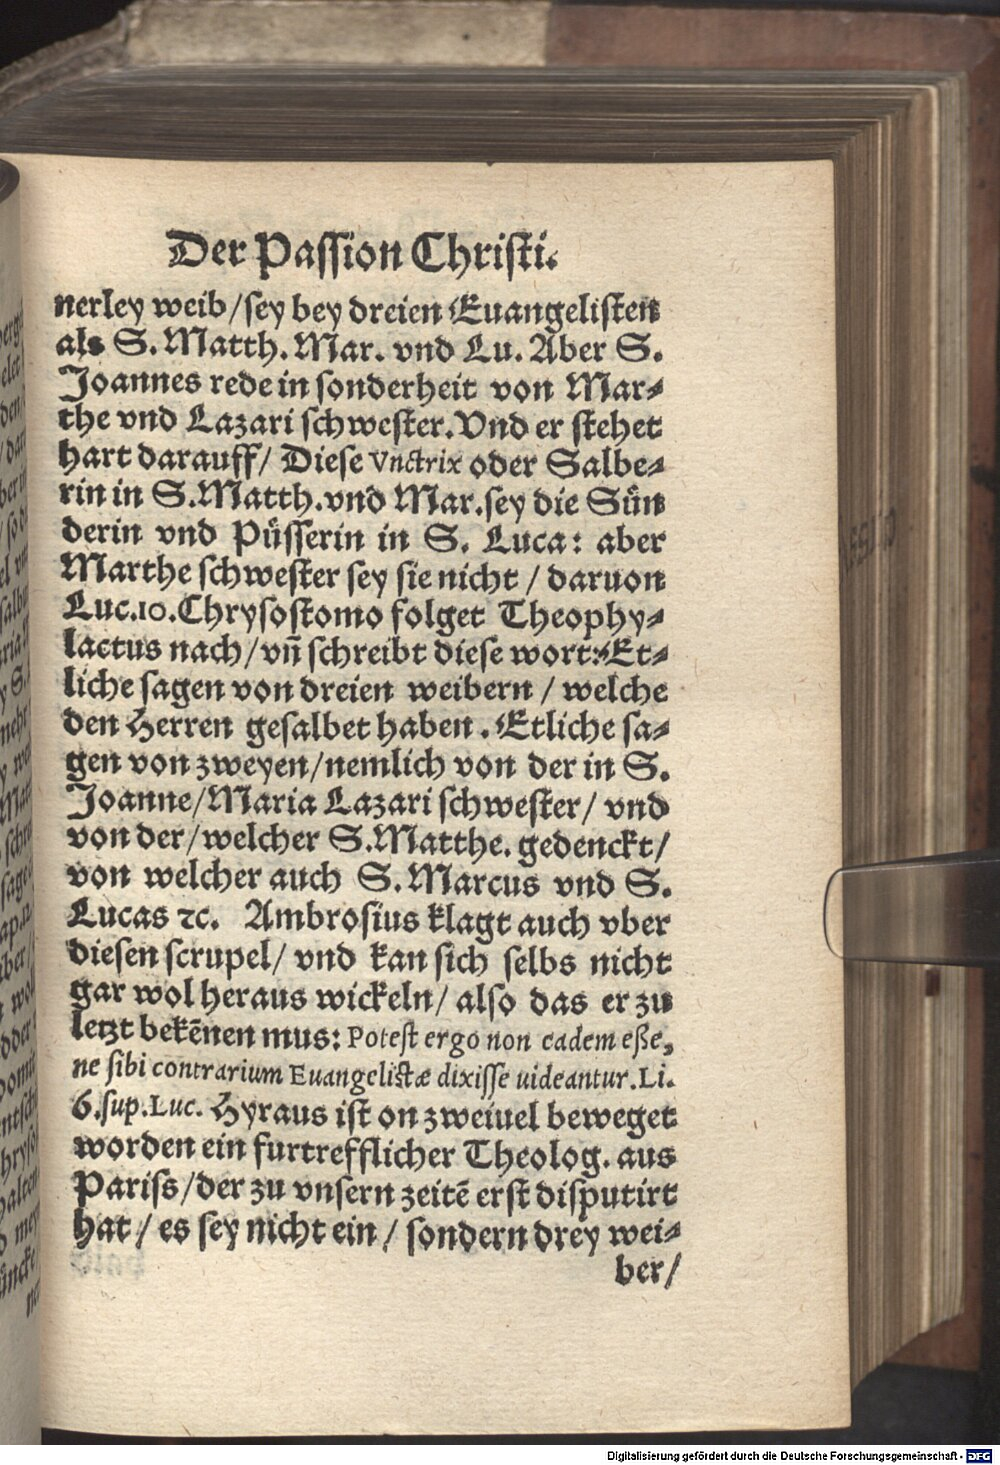 Der Passion Christi.
nerley weib/sey bey dreien Euangelisten
als S. Matth. Mar. vnd Lu. Aber S.
Joannes rede in sonderheit von Mar-
the vnd Lazari schwester. Vnd er stehet
hart darauff/ Diese Vnctrix oder Salbe-
rin in S. Matth. vnd Mar. sey die Sün
derin vnd Püsserin in S. Luca: aber
Marthe schwester sey sie nicht / daruon
Luc. 10. Chrysostomo folget Theophy-
lactus nach/ vñ schreibt diese wort: Et-
liche sagen von dreien weibern / welche
den Herren gesalbet haben. Etliche sa-
gen von zweyen/nemlich von der in S.
Joanne/Maria Lazari schwester/ vnd
von der/welcher S. Matthe. gedenckt/
von welcher auch S. Marcus vnd S.
Lucas ꝛc. Ambrosius klagt auch vber
diesen scrupel/ vnd kan sich selbs nicht
gar wol heraus wickeln/ also das er zu
letzt bekēnen mus: Potest ergo non eadem eße,
ne sibi contrarium Euangelistæ dixisse uideantur. Li.
6. sup. Luc. Hyraus ist on zweiuel beweget
worden ein furtrefflicher Theolog. aus
Pariss/der zu vnsern zeitē erst disputirt
hat / es sey nicht ein / sondern drey wei-
ber/
Digitalisierung gefördert durch die Deutsche Forschungsgemeinschaft - DFG